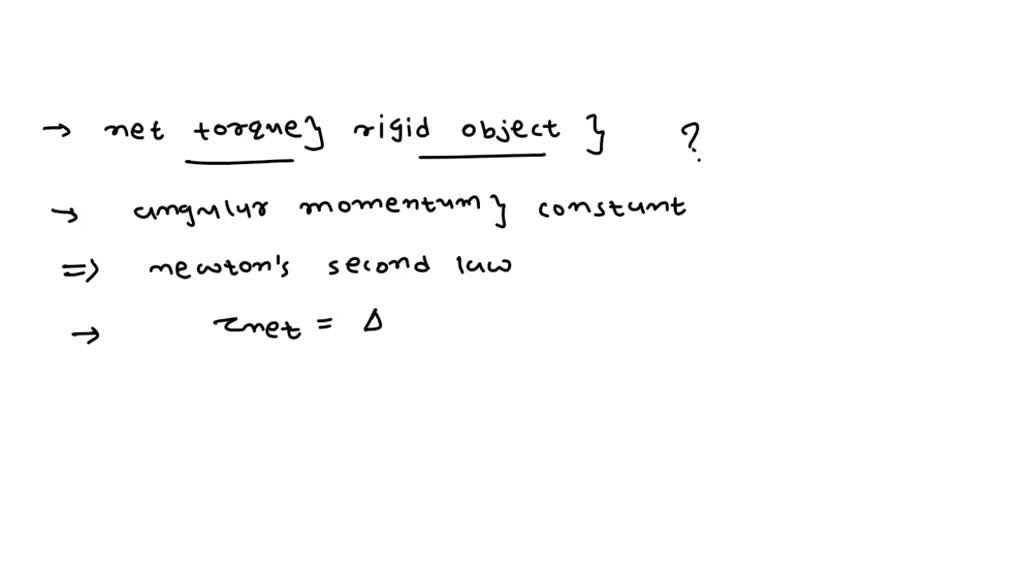 → net torque} rigid object } ?
→ angular momentum} constant
=> newton's second law
→ τnet = Δ